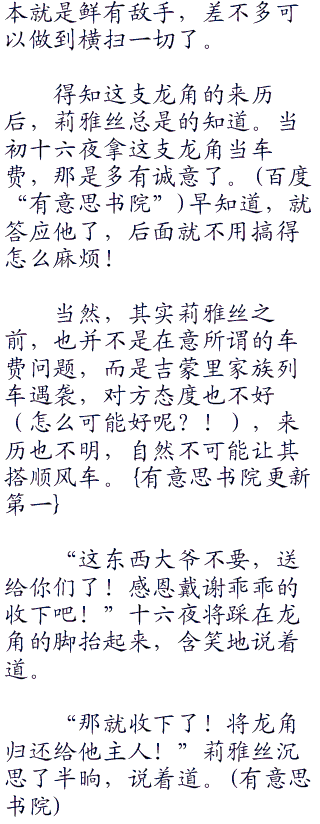 本就是鲜有敌手，差不多可
以做到横扫一切了。
得知这支龙角的来历
后，莉雅丝总是的知道。当
初十六夜拿这支龙角当车
费，那是多有诚意了。(百度
“有意思书院”)早知道，就
答应他了，后面就不用搞得
怎么麻烦！
当然，其实莉雅丝之
前，也并不是在意所谓的车
费问题，而是吉蒙里家族列
车遇袭，对方态度也不好
（怎么可能好呢？！），来
历也不明，自然不可能让其
搭顺风车。{有意思书院更新
第一}
“这东西大爷不要，送
给你们了！感恩戴谢乖乖的
收下吧！”十六夜将踩在龙
角的脚抬起来，含笑地说着
道。
“那就收下了！将龙角
归还给他主人！”莉雅丝沉
思了半晌，说着道。(有意思
书院)